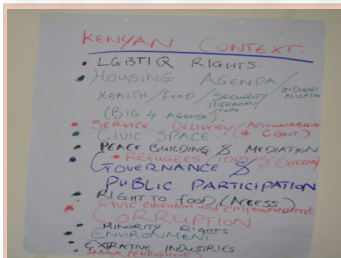 KENYAN CONTEXT.
LGBTIQ RIGHTS.
HOUSING AGENDA/
HEALTH/FOOD/SECURITY/
(BIG 4 AGENDA).
SERVICE DELIVERY/
CIVIC SPACE.
PEACE BUILDING & MEDIATION
REFUGEES/
GOVERNANCE &
PUBLIC PARTICIPATION
RIGHT TO FOOD (ACCESS)
Civic education and empowerment
CORRUPTION.
MINORITY RIGHTS
ENVIRONMENT
INDUSTRIES